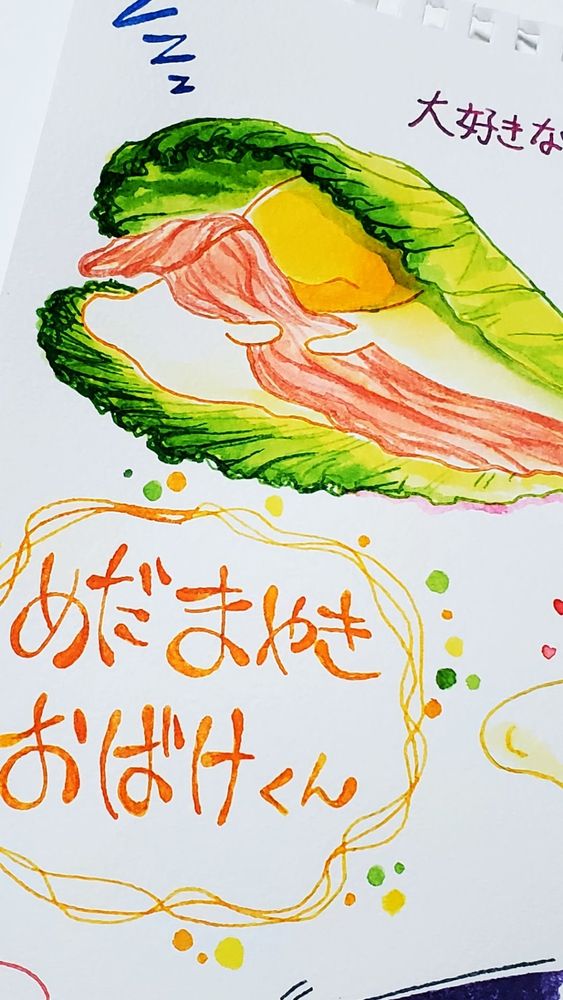 zzz
大好きな
めだまやき
おばけくん